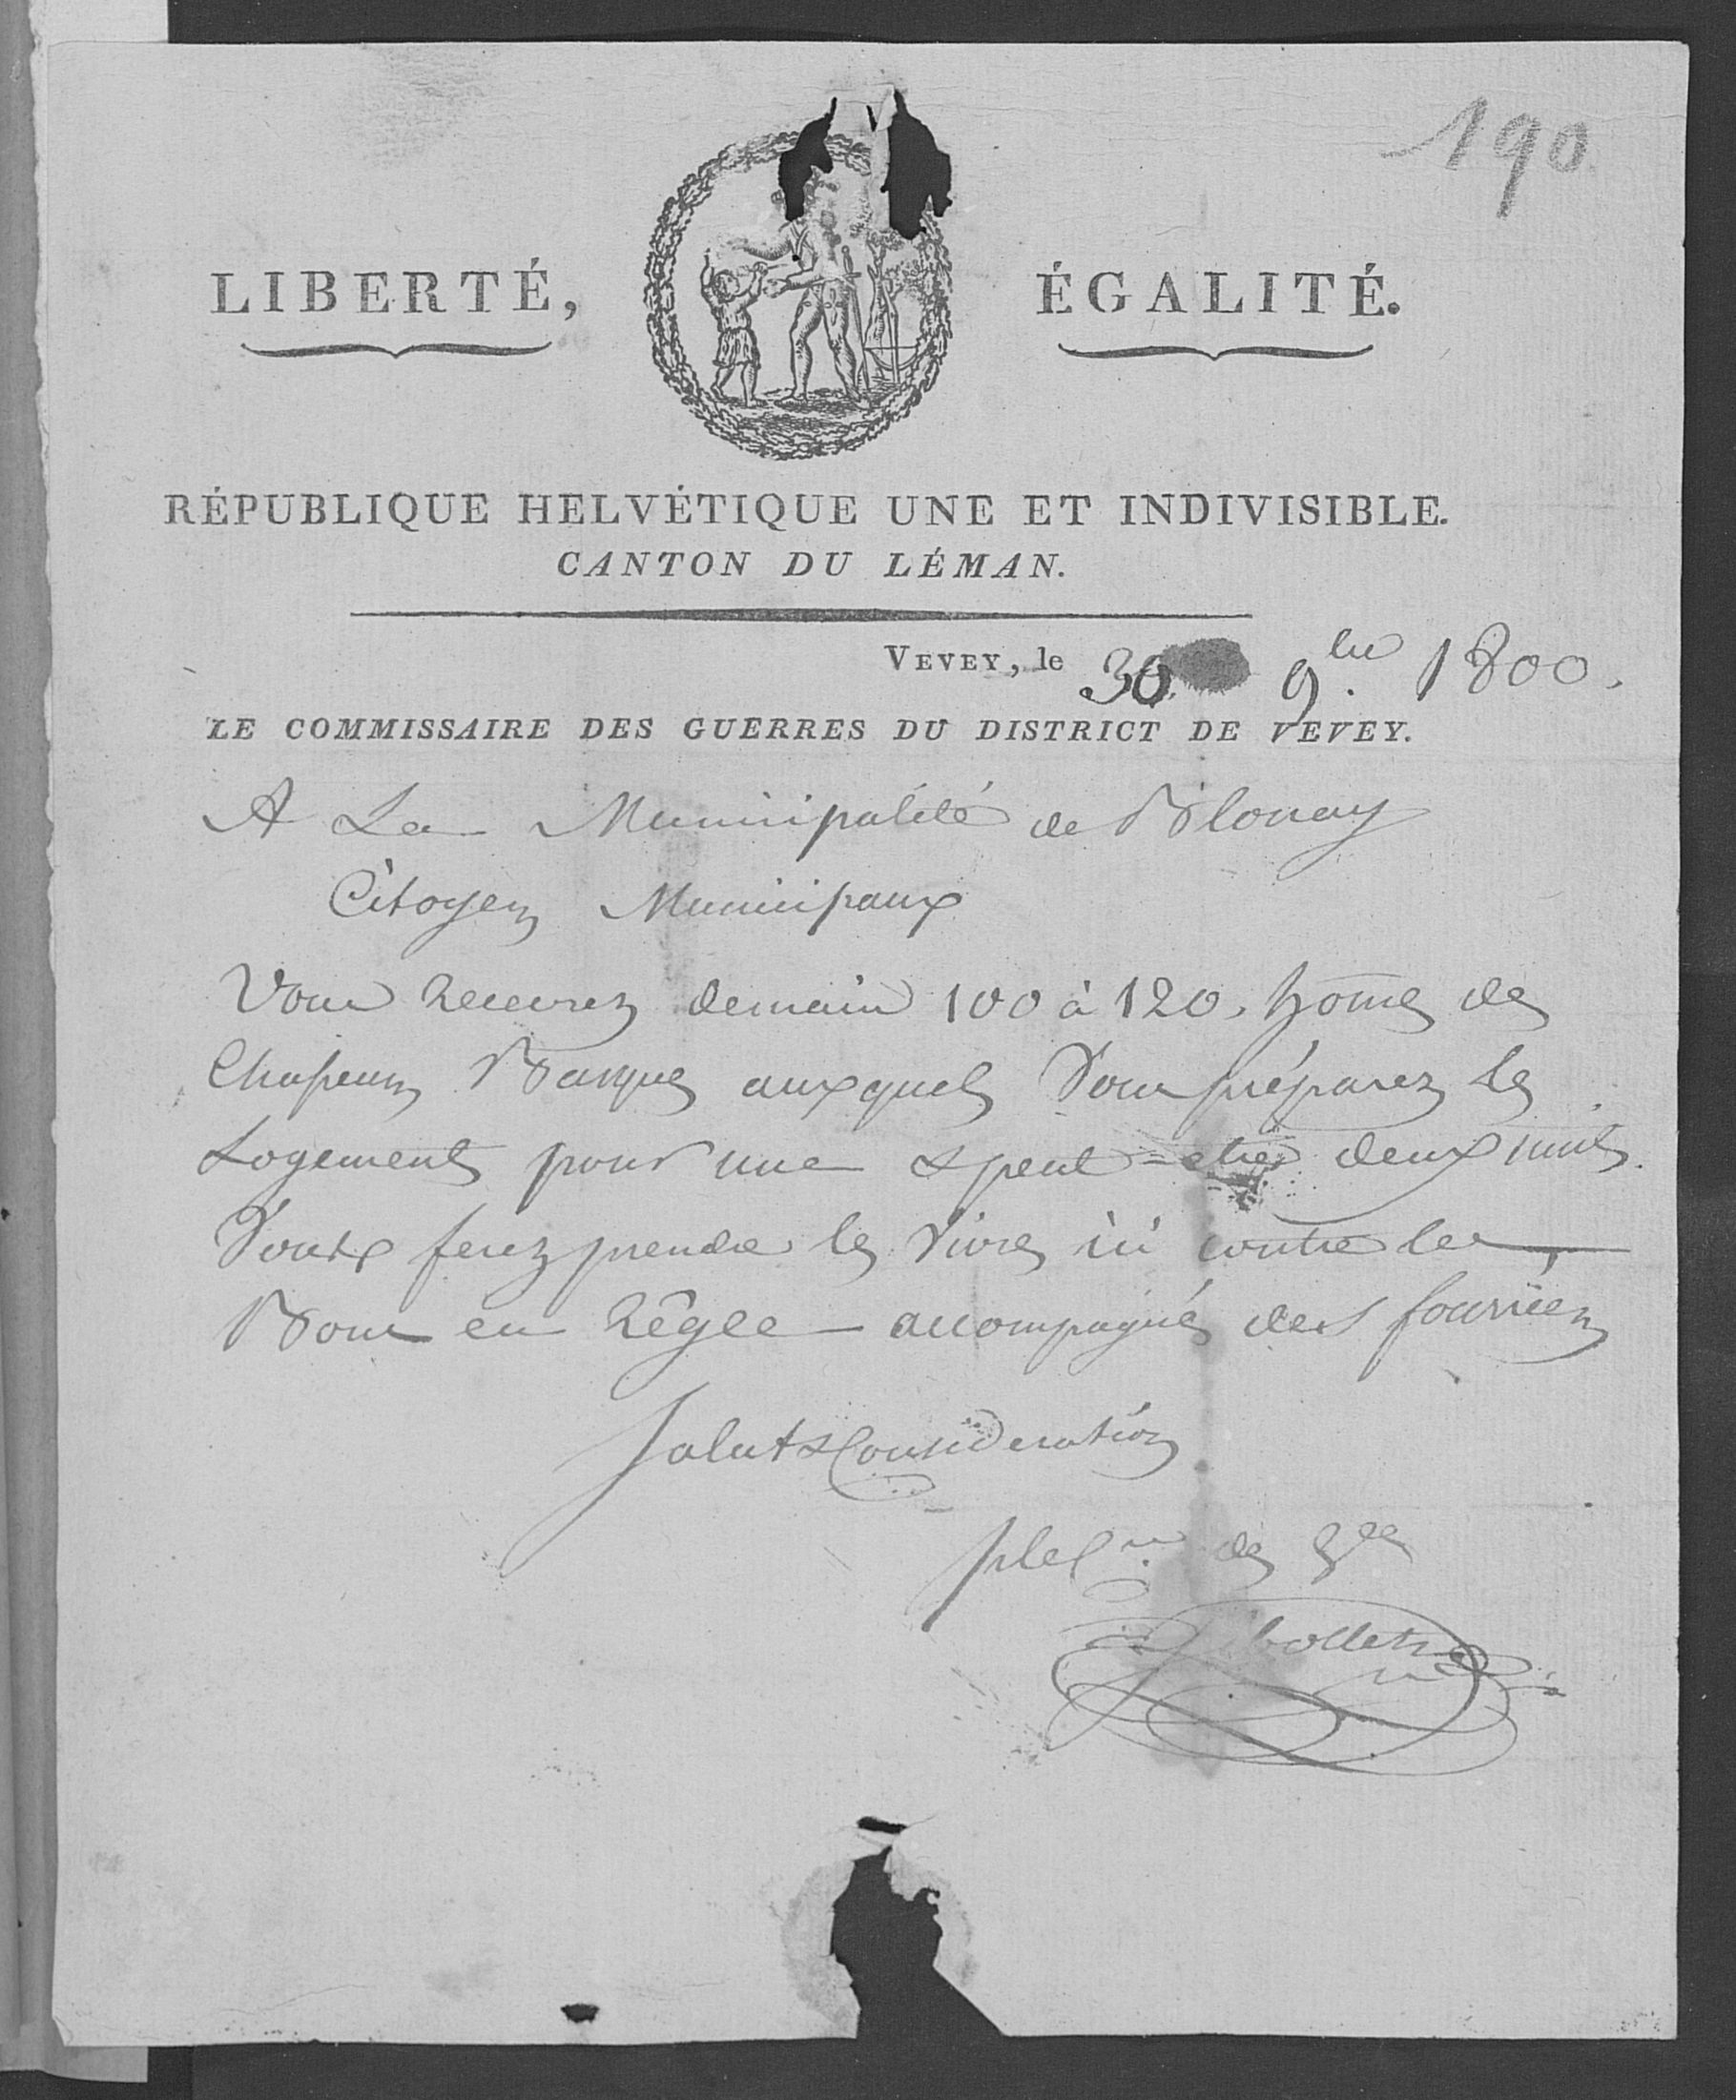 190
LIBERTÉ, ÉGALITÉ.
RÉPUBLIQUE HELVÉTIQUE UNE ET INDIVISIBLE.
CANTON DU LÉMAN.
VEVEY, le 30 9bre 1800.
LE COMMISSAIRE DES GUERRES DU DISTRICT DE VEVEY.
A La Municipalité de Blonay
Citoyens Municipaux
Vous Recevrez demain 100 à 120. hom̄es des
Chasseurs Basques auxquels Vous préparez les
Logements pour une & peut-etre deux nuits.
Vous ferez prendre les Vivres ici contre les
Bons en Règle accompagnés des fourriers
Salut & Consideration
ple Cre des Gres